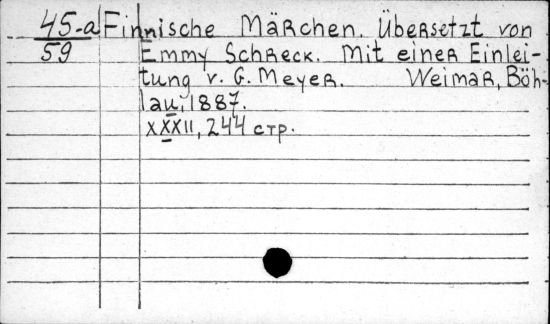 45-a Finnische Märchen. Übersetzt von
59 Emmy Schreck. Mit einer Einlei-
tung v. G. Meyer. Weimar, Böh-
lau, 1887.
XXXII, 244 стр.